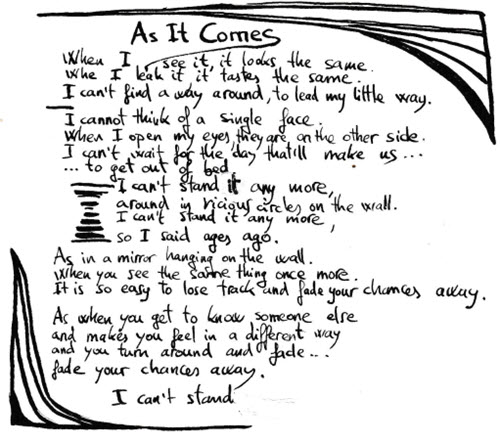 As It Comes
When I see it, it looks the same.
Whe I leak it it tastes the same.
I can't find a way around, to lead my little way.
I cannot think of a single face.
When I open my eyes, they are on the other side.
I can't wait for the day thatill make us ...
... to get out of bed.
I can't stand it any more,
around in vicious circles on the wall.
I can't stand it any more,
so I said ages ago.
As in a mirror hanging on the wall.
When you see the same thing once more.
It is so easy to lose track and fade your chances away.
As when you get to know someone else
and makes you feel in a different way
and you turn around and fade...
fade your chances away.
I can't stand